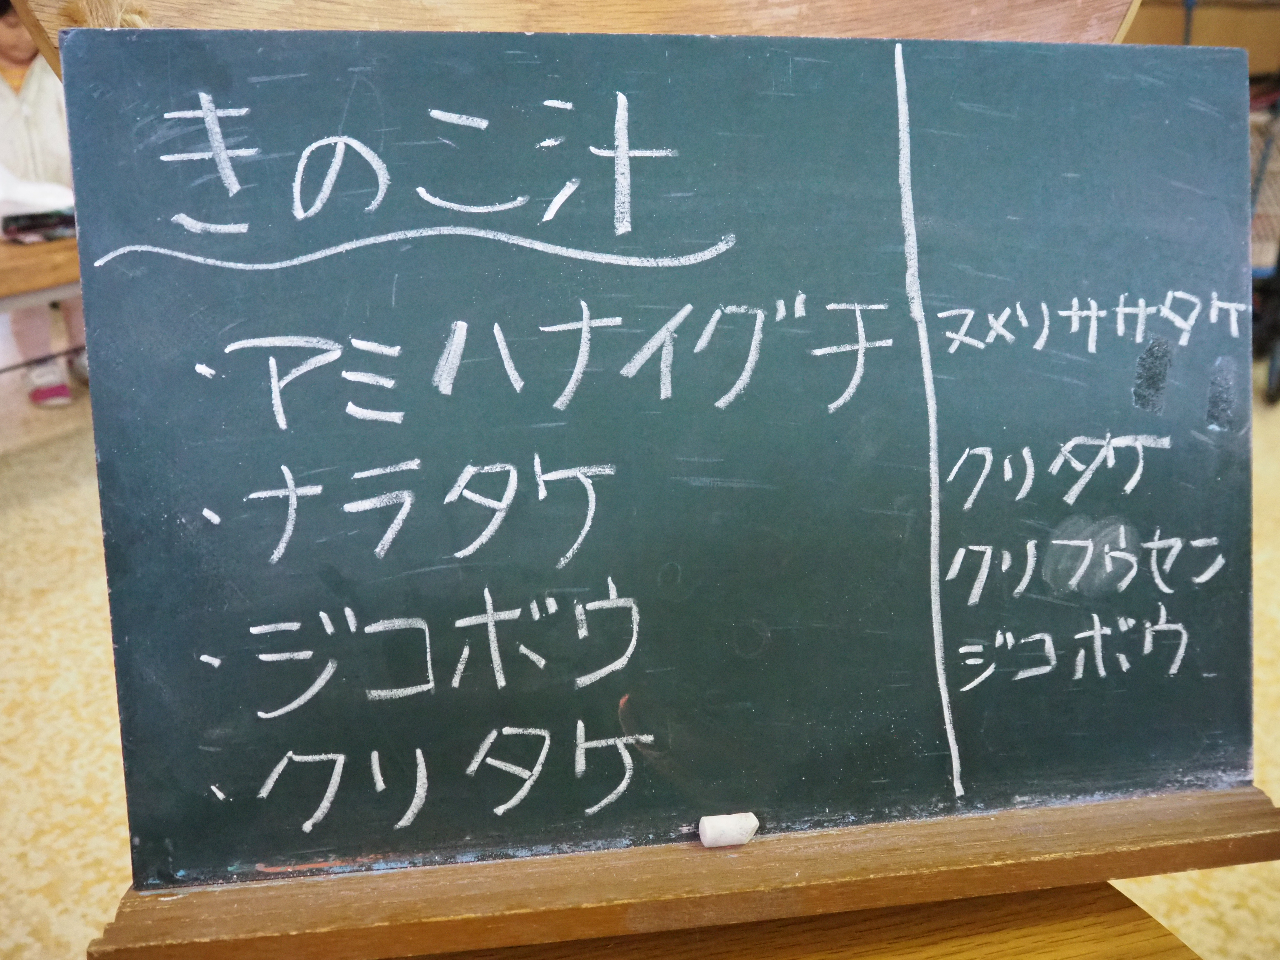 きのこ汁
・アミハナイグチ
・ナラタケ
・ジコボウ
・クリタケ
ヌメリササタケ
クリタケ
クリフウセン
ジコボウ